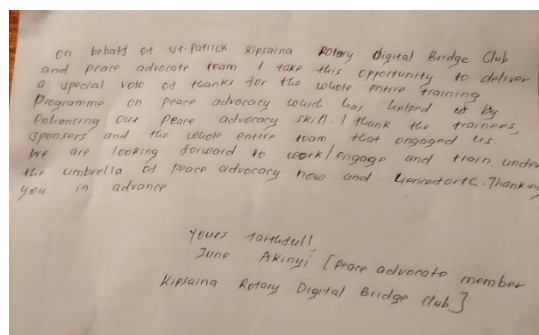 On behalf of St. Patrick Kipsaina Rotary Digital Bridge Club
and peace advocate team I take this opportunity to deliver
a special vote of thanks for the whole entire training
Programme on peace advocacy which has helped us by
Enhancing our peace advocacy skill. I thank the trainers,
sponsers and the whole entire team that engaged us.
We are looking forward to work/engage and train under
the umbrella of peace advocacy now and henceforth. Thanking
you in advance
Yours faithfull
June Akinyi [peace advocate member
Kipsaina Rotary Digital Bridge Club]